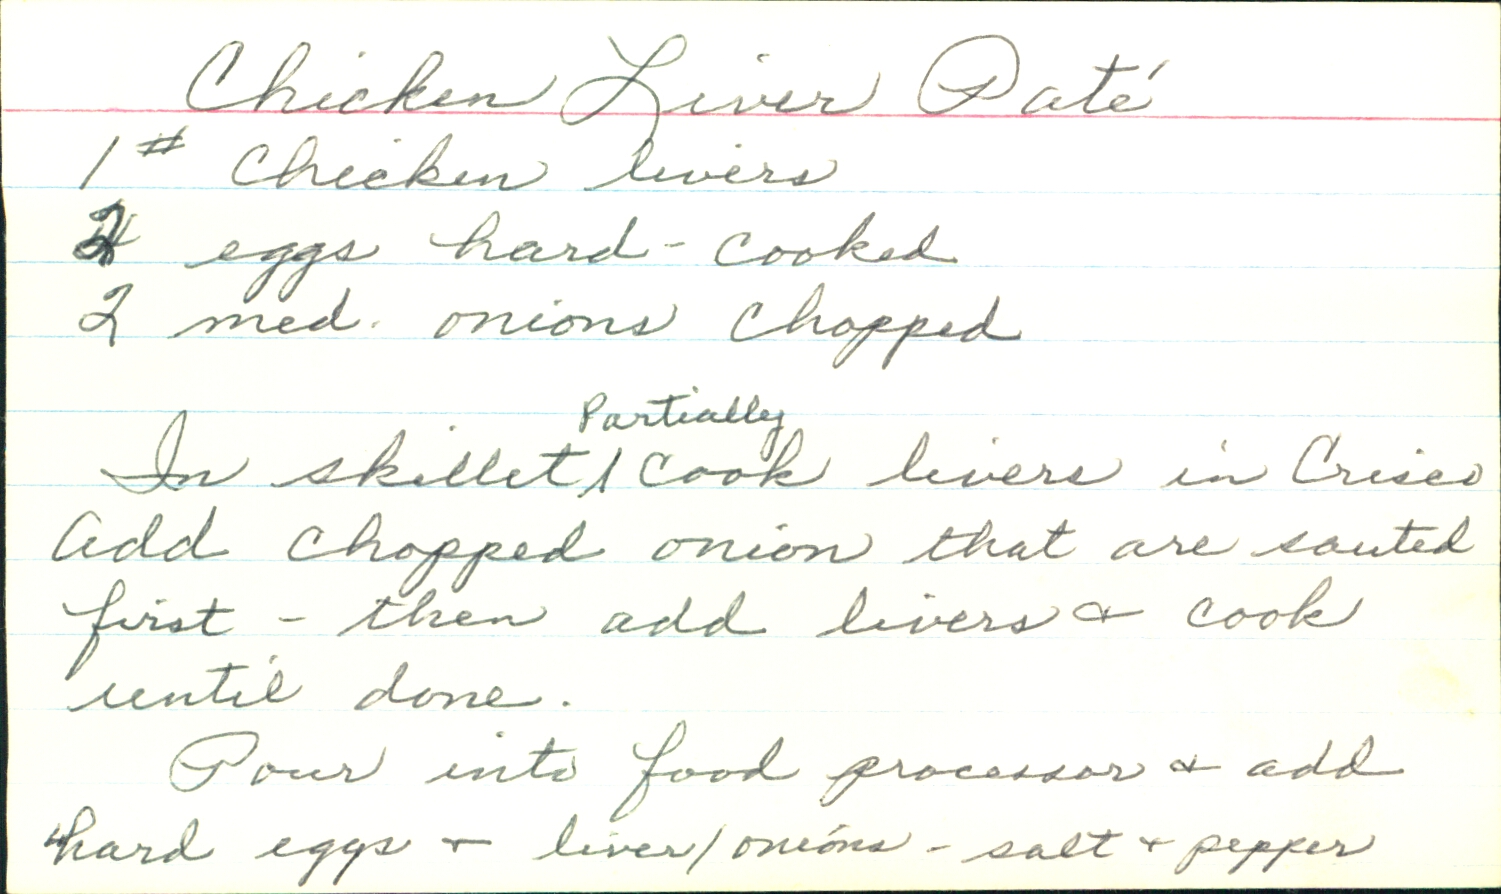 Chicken Liver Paté
1# Chicken livers
eggs hard-cooked
2 med. onions chopped
Partially
In skillet cook livers in Crisco
add chopped onion that are sauted
first - then add livers & cook
until done.
Pour into food processor & add
hard eggs & liver/onions - salt & pepper